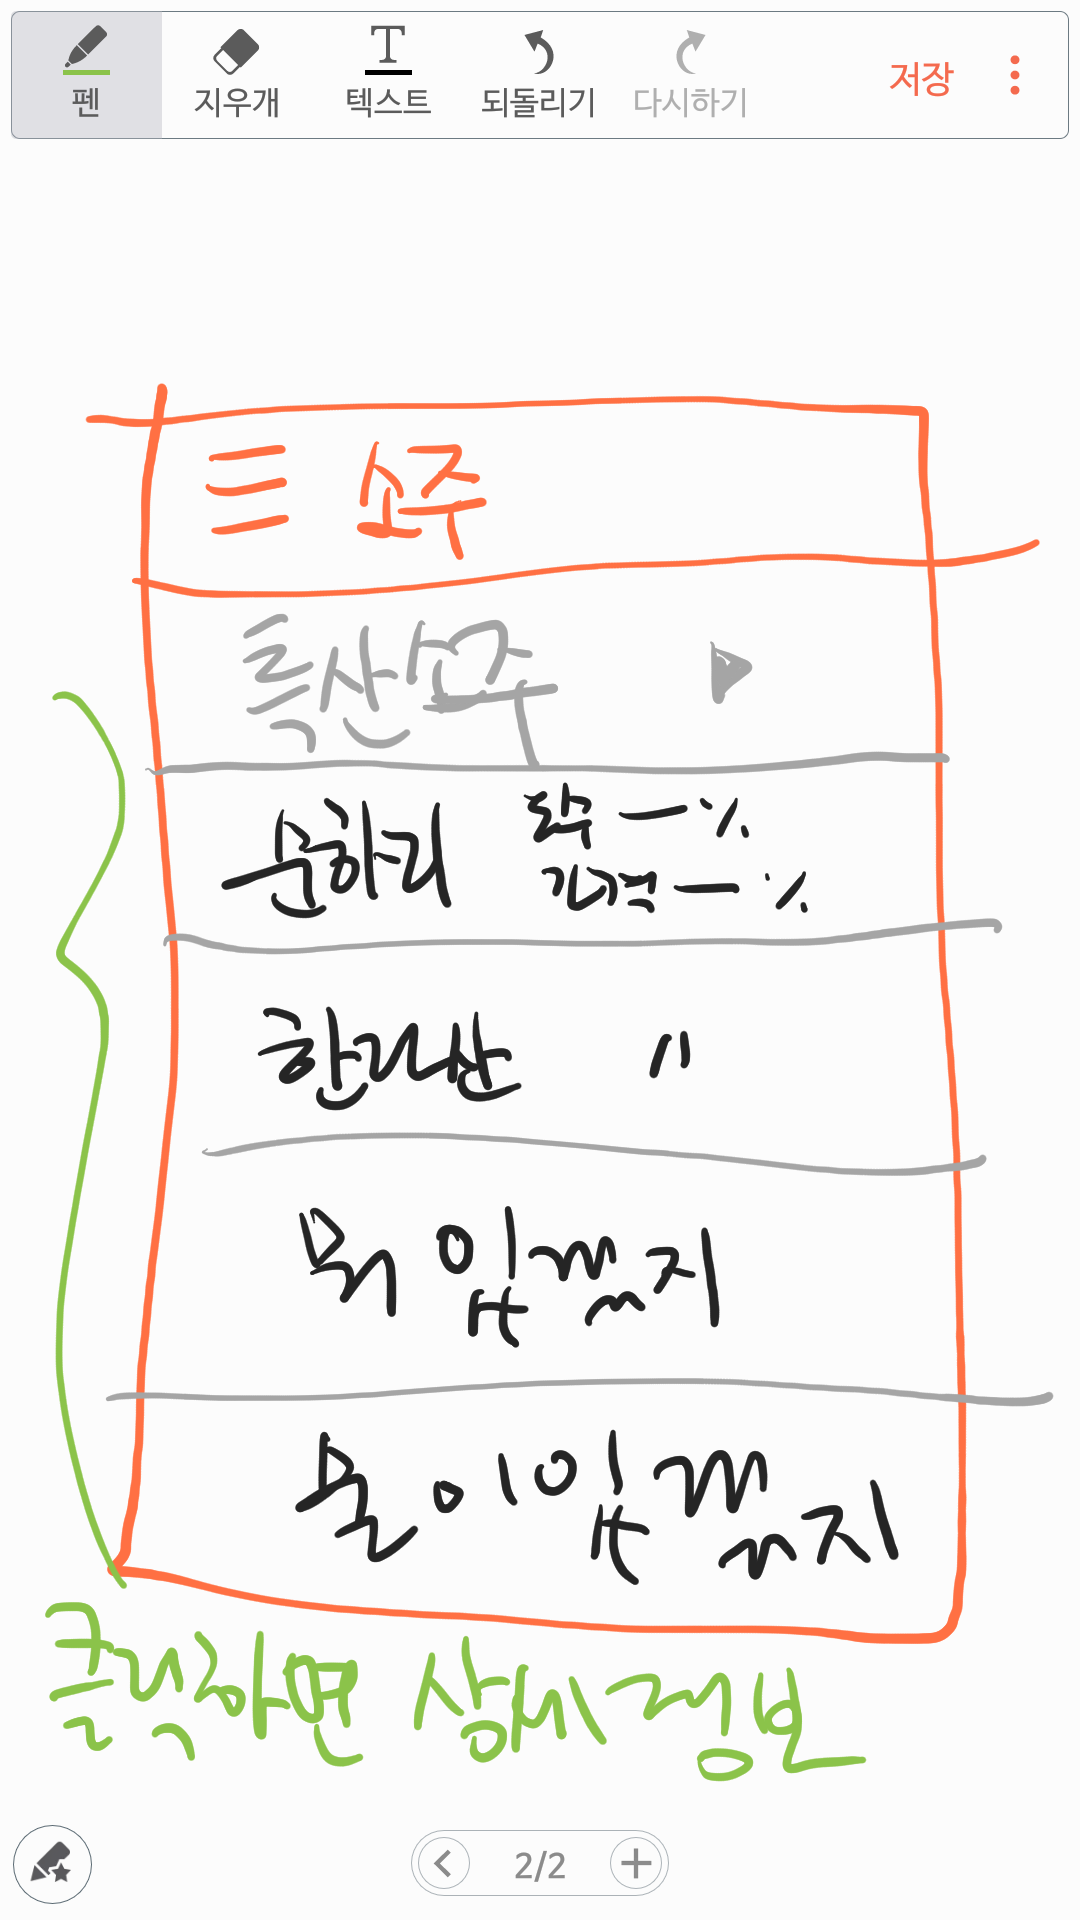 펜 지우개 텍스트 되돌리기 다시하기 저장
소주
특산소주
순하리 도수 - %
가격 - %
한라산 "
뭐 있겠지
클릭하면 상세정보
2/2